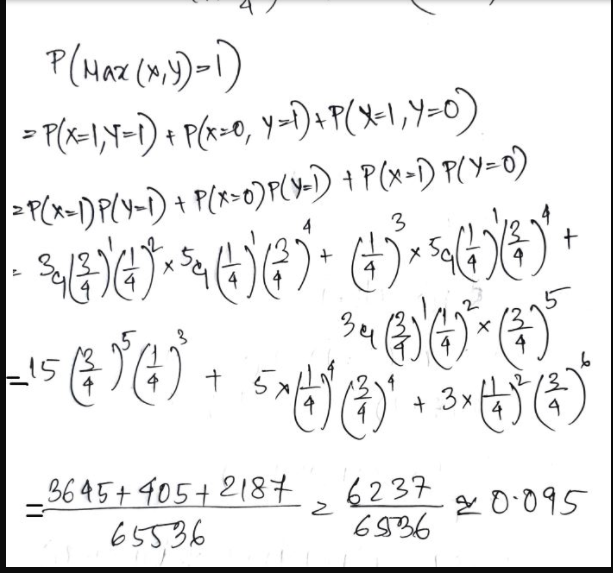 4
P(Max(x,y)=1)
= P(X=1,Y=1) + P(X=0, Y=1) + P(X=1, Y=0)
= P(X=1)P(Y=1) + P(X=0)P(Y=1) + P(X=1) P(Y=0)
= 3c₁(3/4)¹(1/4)² × 5c₁(1/4)¹(3/4)⁴ + (1/4)³ × 5c₁(1/4)¹(3/4)⁴ +
3c₁(3/4)¹(1/4)² × (3/4)⁵
= 15(3/4)⁵(1/4)³ + 5×(1/4)⁴(3/4)⁴ + 3×(1/4)²(3/4)⁶
= 3645+405+2187/65536 = 6237/65536 ≈ 0.095